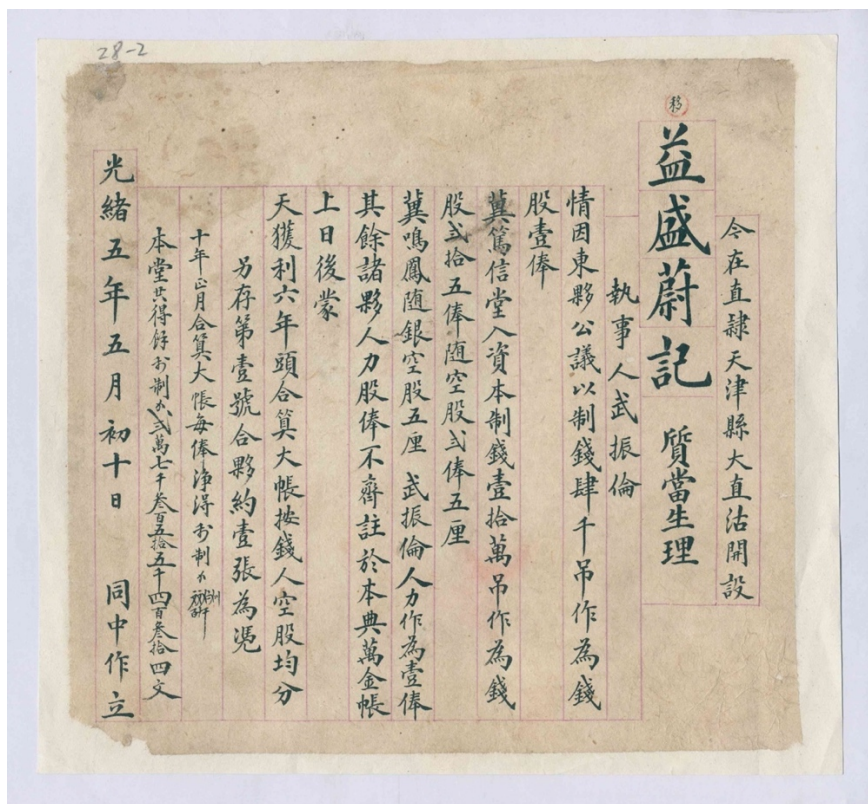 28-2
移
令在直隸天津縣大直沽開設
益盛蔚記 質當生理
執事人武振倫
情因東夥公議以制錢肆千吊作為錢
股壹俸
冀篤信堂入資本制錢壹拾萬吊作為錢
股弍拾五俸随空股弍俸五厘
冀鳴鳳随銀空股五厘 武振倫人力作為壹俸
其餘諸夥人力股俸不齊註於本典萬金帳
上日後蒙
天獲利六年頭合算大帳按錢人空股均分
另存第壹號合夥約壹張為凴
十年正月合算大帳每俸淨得
本堂共得餘 弍萬七千叁百五拾五千四百叁拾四文
光緒五年五月初十日 同中作立